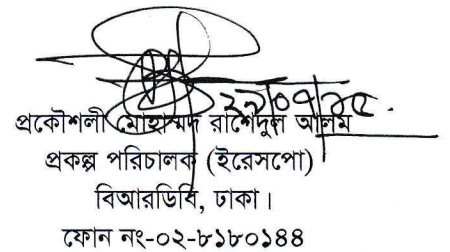 ২৯/০৭/১৫.
প্রকৌশলী মোহাম্মদ রাশেদুল আলম
প্রকল্প পরিচালক (ইরেসপো)
বিআরডিবি, ঢাকা।
ফোন নং-০২-৮১৮০১৪৪